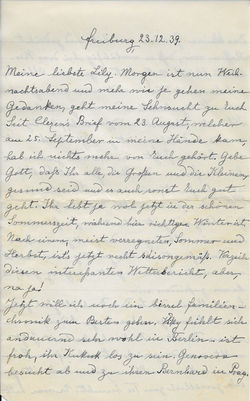 Freiburg 23.12.39.
Meine liebste Lily. Morgen ist nun Weih-
nachtsabend und mehr wie je gehen meine
Gedanken, geht meine Sehnsucht zu Euch
Seit Brief vom 23. August, welcher
am 25. September in meine Hände kam,
hab ich nichts mehr von Euch gehört. Gebe
Gott, daß Ihr alle, die Großen und die Kleinen,
gesund seid und es auch sonst Euch gut
geht. Ihr lebt ja wohl jetzt in der schönen
Sommerszeit, während hier richtiger Winter ist.
Nach einem, meist verregneten, Sommer und
Herbst, ist's jetzt recht saisongemäß. Verzeih
diesen interessanten Wetterbericht, aber,
na ja!
Jetzt will ich noch ein bissel Familien-
chronik zum Besten geben. fühlt sich
andauernd sehr wohl in Berlin u. ist
froh, ihr los zu sein. Genoveva
besucht ab und zu ihren Bernhard in Prag.